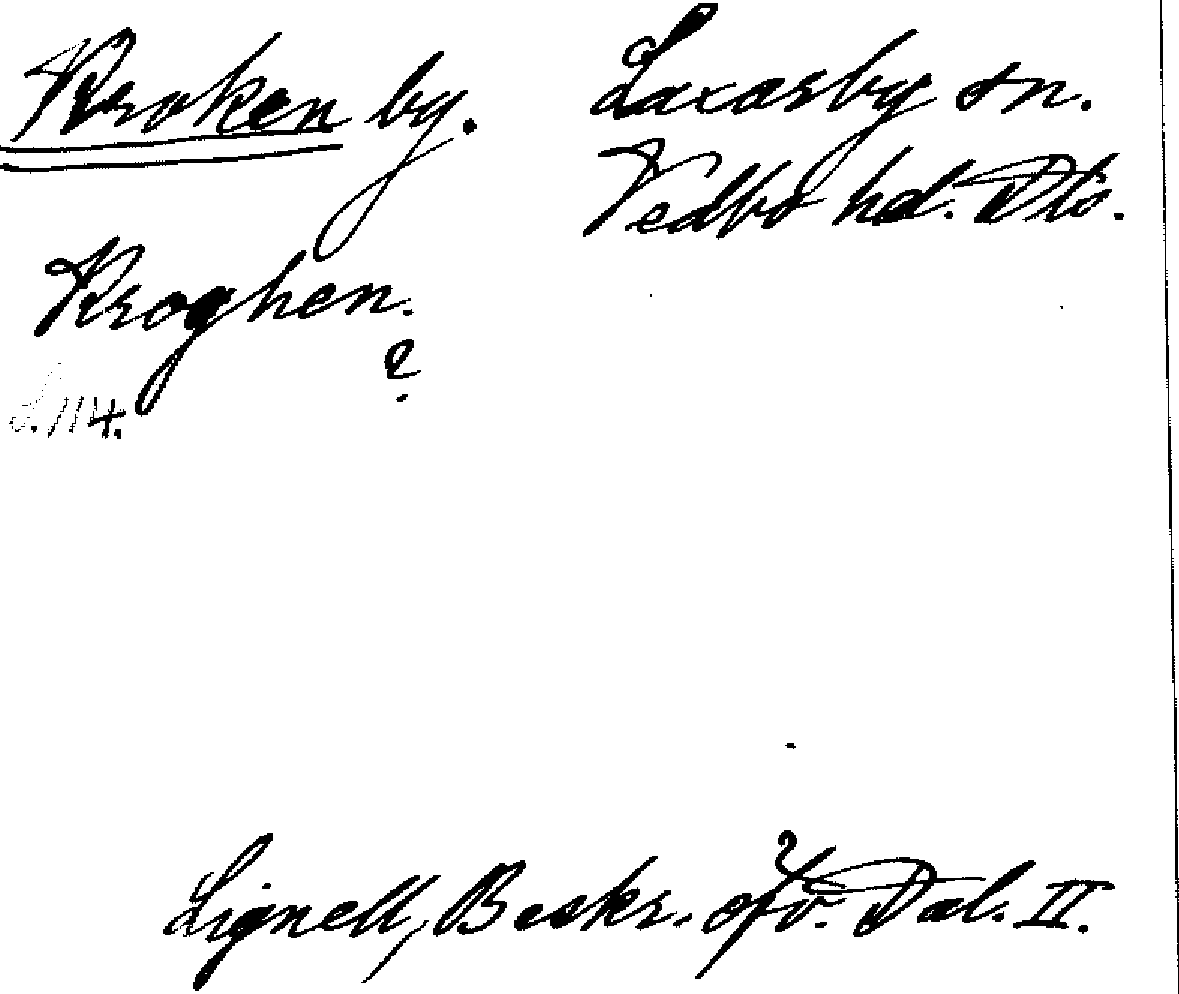 Kroken by.
Laxarby sn.
Vedbo hd. Dls.
Kroghen.
?
S. 114.
Lignell, Beskr. öfv. Dal. II.